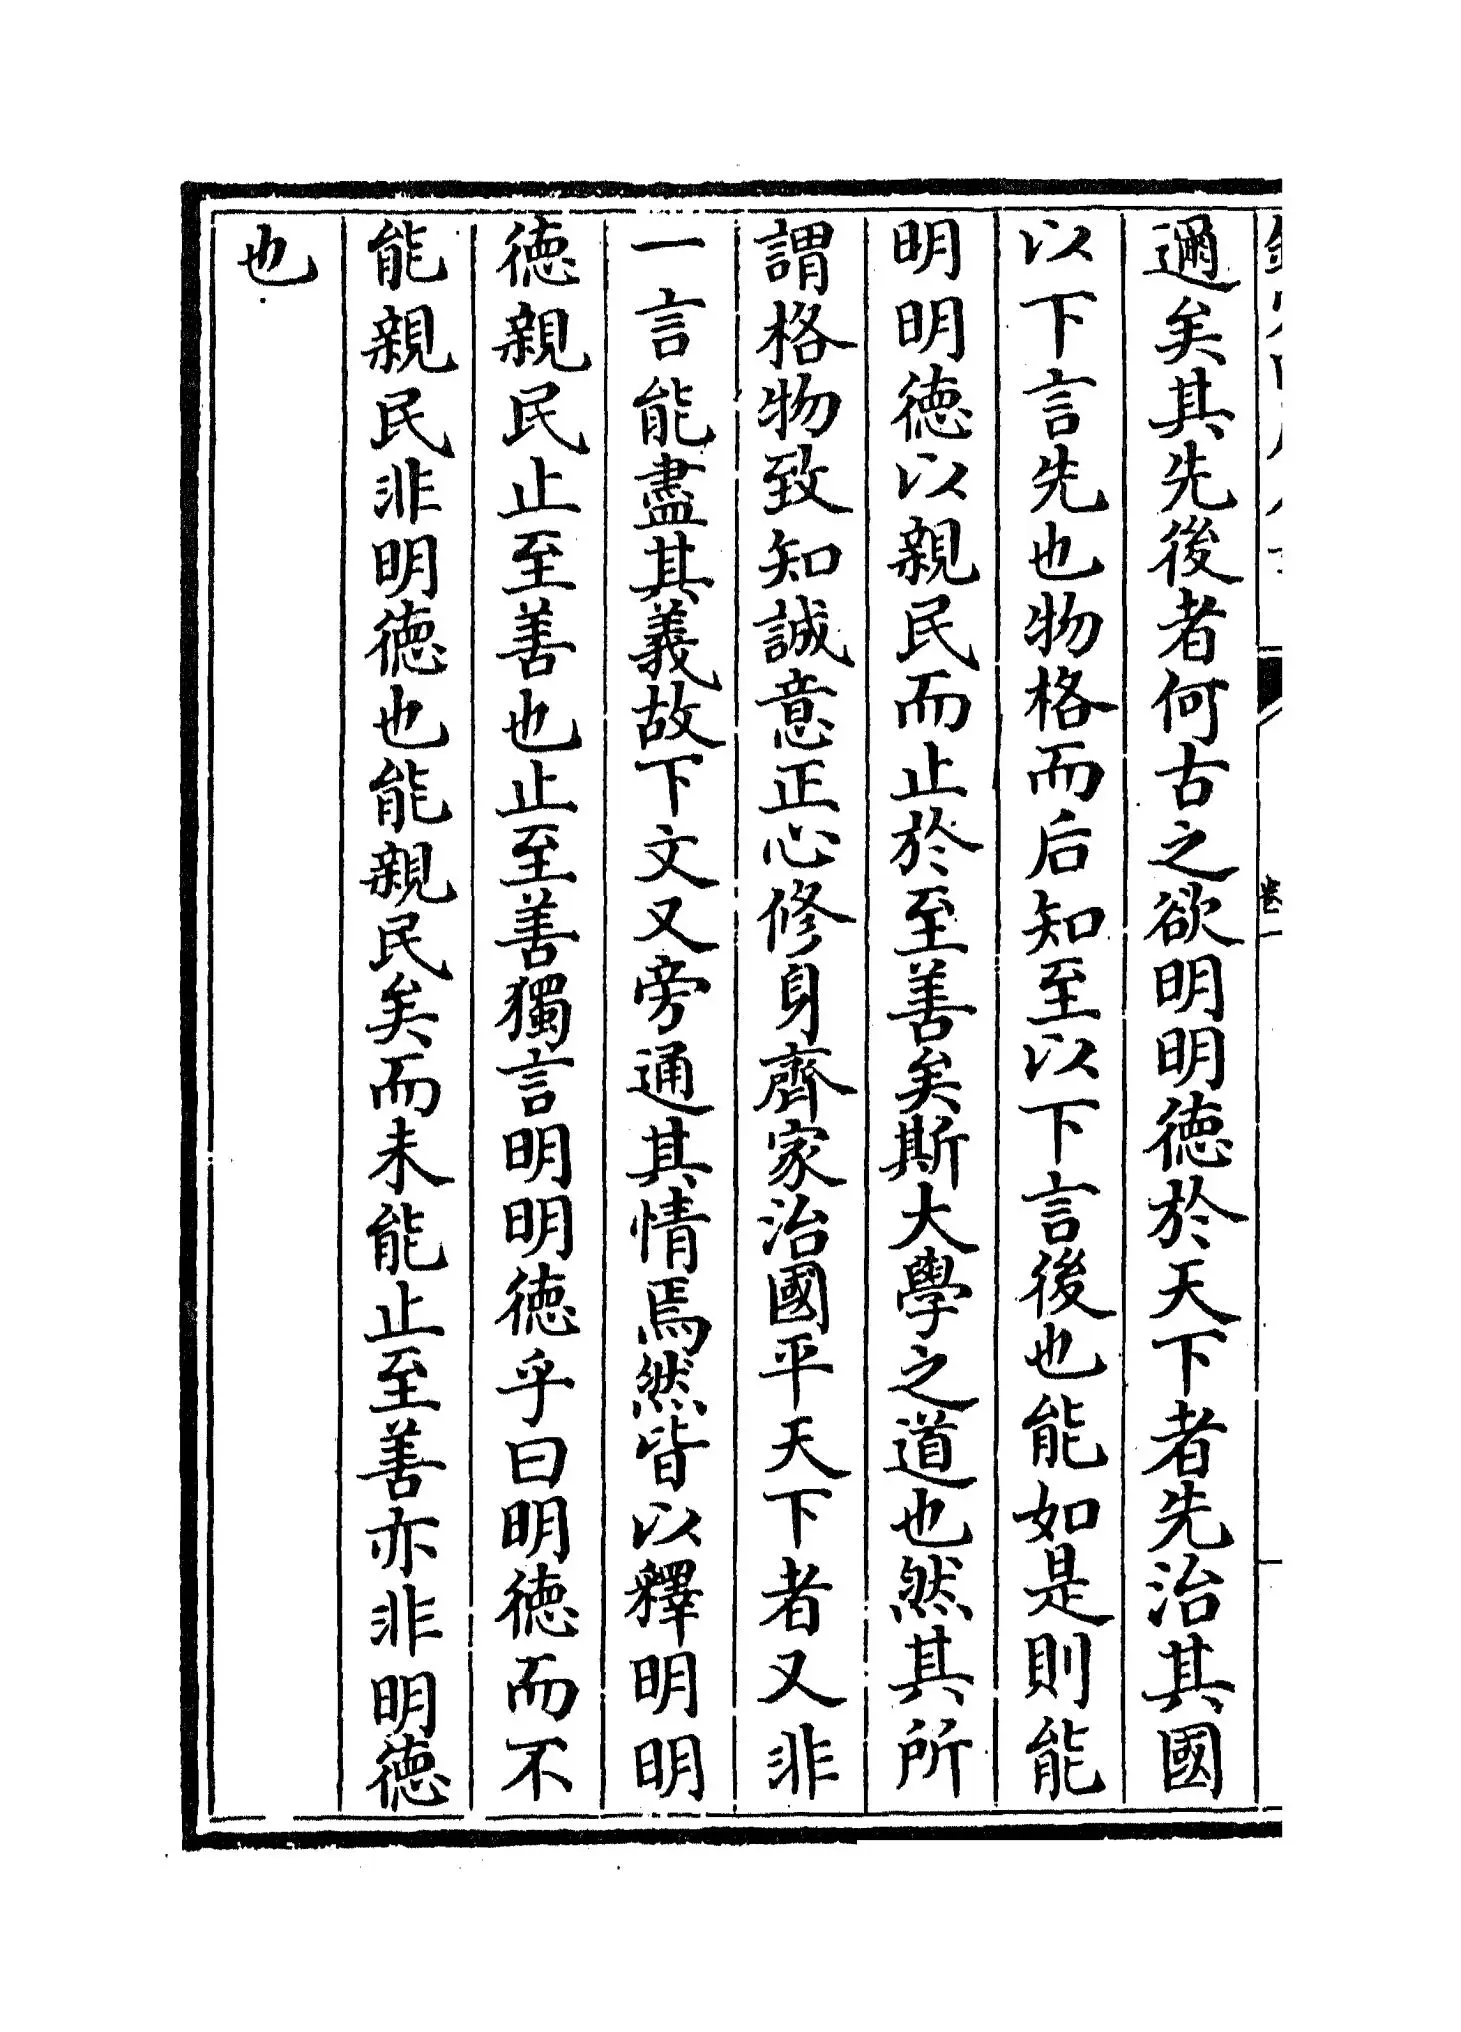 邇矣其先後者何古之欲明明徳於天下者先治其國
以下言先也物格而后知至以下言後也能如是則能
明明徳以親民而止於至善矣斯大學之道也然其所
謂格物致知誠意正心修身齊家治國平天下者又非
一言能盡其義故下文又旁通其情焉然皆以釋明明
徳親民止至善也止至善獨言明明徳乎曰明徳而不
能親民非明徳也能親民矣而未能止至善亦非明徳
也